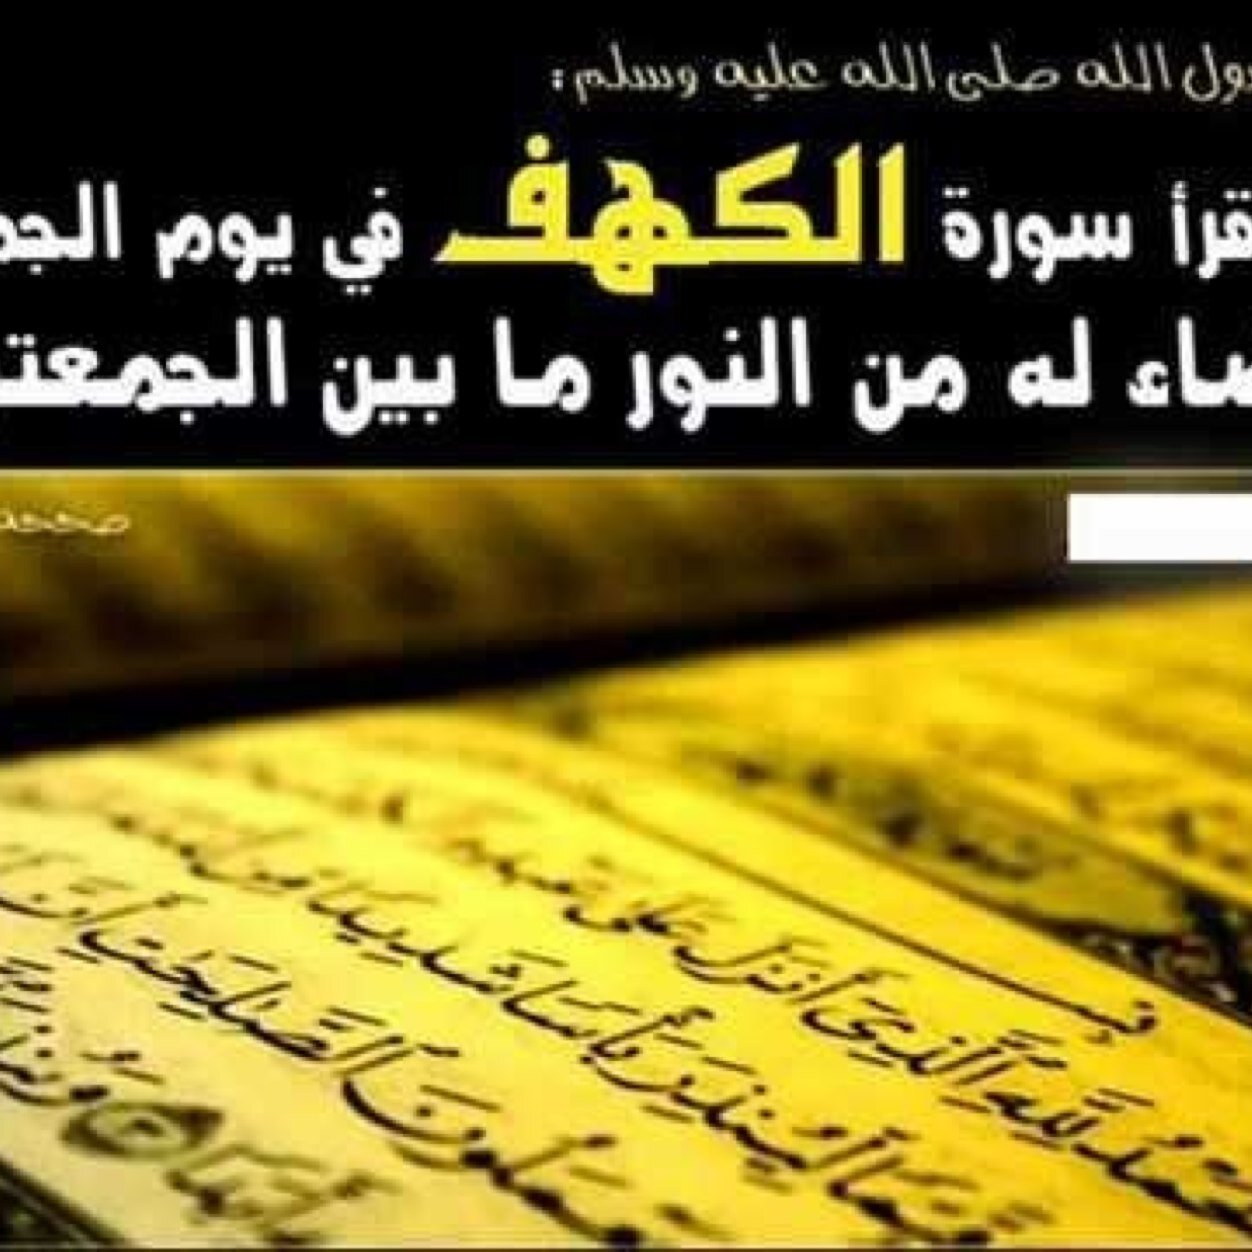 سول الله صلى الله عليه وسلم :
قرأ سورة الكهف في يوم الجم
ضاء له من النور ما بين الجمعت
صححه
الحمد لله الذي أنزل على عبده
قيما لينذر بأسا شديدا من
يعملون الصلحت أن
أبدا وينذر